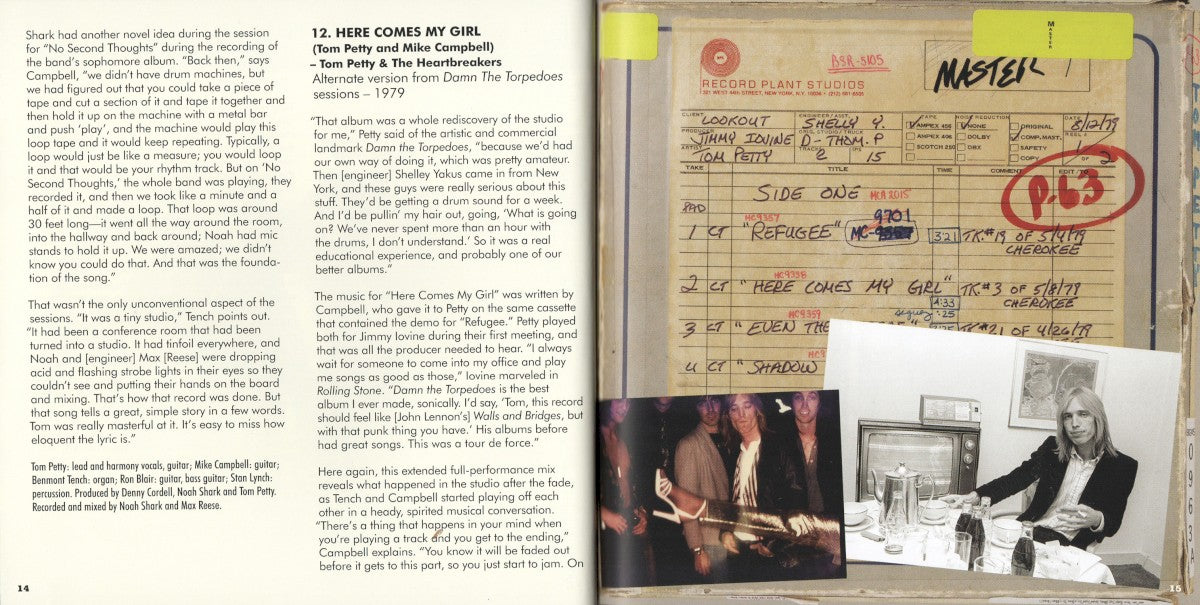 Shark had another novel idea during the session
for “No Second Thoughts” during the recording of
the band’s sophomore album. “Back then,” says
Campbell, “we didn’t have drum machines, but
we had figured out that you could take a piece of
tape and cut a section of it and tape it together and
then hold it up on the machine with a metal bar
and push ‘play’, and the machine would play this
loop tape and it would keep repeating. Typically, a
loop would just be like a measure; you would loop
it and that would be your rhythm track. But on ‘No
Second Thoughts,’ the whole band was playing, they
recorded it, and then we took like a minute and a
half of it and made a loop. That loop was around
30 feet long—it went all the way around the room,
into the hallway and back around; Noah had mic
stands to hold it up. We were amazed; we didn’t
know you could do that. And that was the founda-
tion of the song.”
That wasn’t the only unconventional aspect of the
sessions. “It was a tiny studio,” Tench points out.
“It had been a conference room that had been
turned into a studio. It had tinfoil everywhere, and
Noah and [engineer] Max [Reese] were dropping
acid and flashing strobe lights in their eyes so they
couldn’t see and putting their hands on the board
and mixing. That’s how that record was done. But
that song tells a great, simple story in a few words.
Tom was really masterful at it. It’s easy to miss how
eloquent the lyric is.”
Tom Petty: lead and harmony vocals, guitar; Mike Campbell: guitar;
Benmont Tench: organ; Ron Blair: guitar, bass guitar; Stan Lynch:
percussion. Produced by Denny Cordell, Noah Shark and Tom Petty.
Recorded and mixed by Noah Shark and Max Reese.
14
12. HERE COMES MY GIRL
(Tom Petty and Mike Campbell)
– Tom Petty & The Heartbreakers
Alternate version from Damn The Torpedoes
sessions – 1979
“That album was a whole rediscovery of the studio
for me,” Petty said of the artistic and commercial
landmark Damn the Torpedoes, “because we’d had
our own way of doing it, which was pretty amateur.
Then [engineer] Shelley Yakus came in from New
York, and these guys were really serious about this
stuff. They’d be getting a drum sound for a week.
And I’d be pullin’ my hair out, going, ‘What is going
on? We’ve never spent more than an hour with
the drums, I don’t understand.’ So it was a real
educational experience, and probably one of our
better albums.”
The music for “Here Comes My Girl” was written by
Campbell, who gave it to Petty on the same cassette
that contained the demo for “Refugee.” Petty played
both for Jimmy Iovine during their first meeting, and
that was all the producer needed to hear. “I always
wait for someone to come into my office and play
me songs as good as those,” Iovine marveled in
Rolling Stone. “Damn the Torpedoes is the best
album I ever made, sonically. I’d say, ‘Tom, this record
should feel like [John Lennon’s] Walls and Bridges, but
with that punk thing you have.’ His albums before
had great songs. This was a tour de force.”
Here again, this extended full-performance mix
reveals what happened in the studio after the fade,
as Tench and Campbell started playing off each
other in a heady, spirited musical conversation.
“There’s a thing that happens in your mind when
you’re playing a track and you get to the ending,”
Campbell explains. “You know it will be faded out
before it gets to this part, so you just start to jam. On
MASTER
BSR-5105
MASTER
RECORD PLANT STUDIOS
321 WEST 44th STREET, NEW YORK, N.Y. 10036 • (212) 581-6505
CLIENT LOOKOUT ENGINEER/ASST. SHELLY Y. TAPE NOISE REDUCTION DATE 8/12/79
PRODUCER JIMMY IOVINE ORIG. STUDIO/TRUCK D-THOM. P AMPEX 456 NONE ORIGINAL REEL #
ARTIST TOM PETTY TRACKS 2 IPS 15 AMPEX 406 DOLBY COMP. MAST. 1 OF 2
SCOTCH 250 DBX SAFETY
COPY
TAKE TITLE TIME COMMENT EDIT/TO
P.63
SIDE ONE MCA 2015
PAD
MC9357 9701
1 CT "REFUGEE" 3:21 TK.#19 OF 5/4/79
CHEROKEE
MC9358
2 CT "HERE COMES MY GIRL" TK.#3 OF 5/8/79
4:33 CHEROKEE
MC9359 segue :25
3 CT "EVEN THE TK#21 OF 4/26/79
MC9
4 CT "SHADOW
15